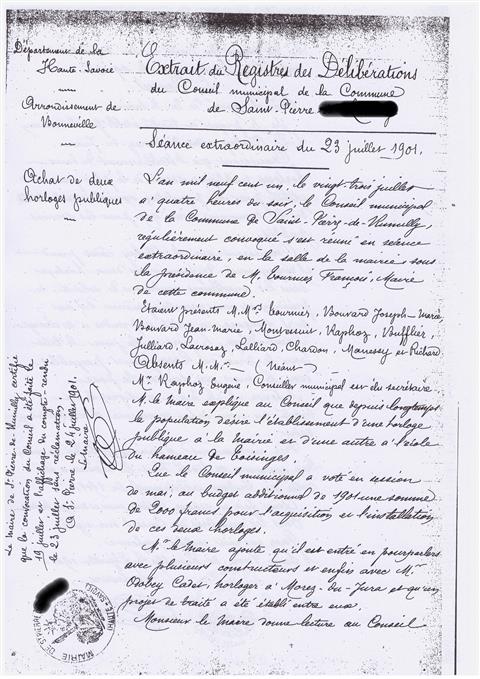 Département de la
Haute-Savoie
Arrondissement de
Bonneville
Achat de deux
horloges publiques
Extrait du Registres des Délibérations
du Conseil municipal de la Commune
de Saint-Pierre
Séance extraordinaire du 23 juillet 1901.
L'an mil neuf cent un, le vingt-trois juillet
à quatre heures du soir, le Conseil municipal
de la Commune de Saint-Pierre-de-Rumilly,
régulièrement convoqué s'est réuni en séance
extraordinaire, en la salle de la mairie sous
la présidence de M. Tournier François, Maire
de cette commune.
Etaient présents M.Mrs Tournier, Bouvard Joseph-Marie,
Bouvard Jean-Marie, Montessuit, Raphoz, Bufflier,
Julliard, Lacroaz, Lalliard, Chardon, Manessy et Richard
Absents M.M. — (Néant)
Mr Raphoz Eugène, Conseiller municipal est élu secrétaire
M. le Maire explique au Conseil que depuis longtemps
la population désire l'établissement d'une horloge
publique à la Mairie et d'une autre à l'école
du hameau de Toisinges.
Que le Conseil municipal a voté en session
de mai, au budget additionnel de 1901 une somme
de 2000 francs pour l'acquisition et l'installation
de ces deux horloges.
Mr le Maire ajoute qu'il est entré en pourparlers
avec plusieurs constructeurs et enfin avec Mr
Odobey Cadet, horloger à Morez-du-Jura et qu'un
projet de traité a été établi entre eux.
Monsieur le Maire donne lecture au Conseil
Le Maire de St Pierre-de-Rumilly certifie
que la convocation du Conseil a été faite le
19 juillet et l'affichage du compte-rendu
le 23 juillet sans réclamations.
A St Pierre le 24 juillet 1901.
Le Maire
MAIRIE DE